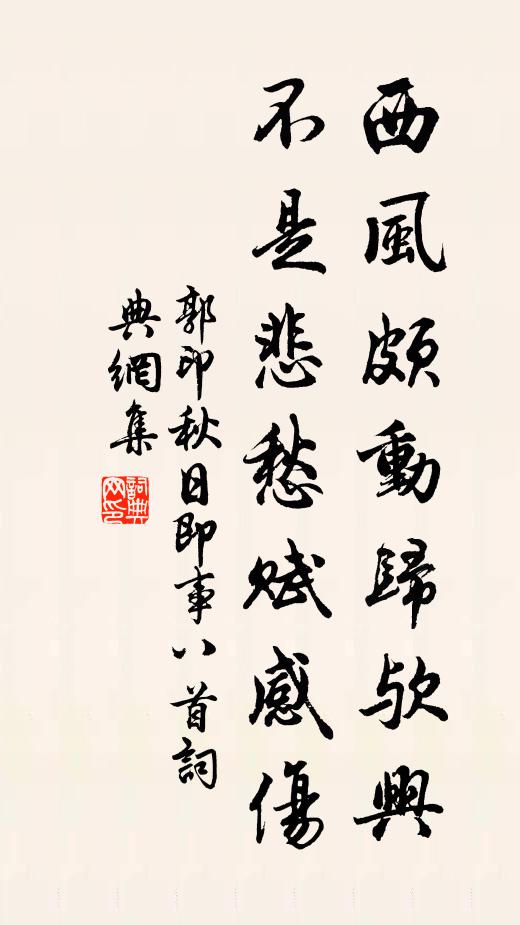 西風頗動歸欤興
不是悲愁賦感傷
郭印秋日即事八首詞
典網集
詞典网印